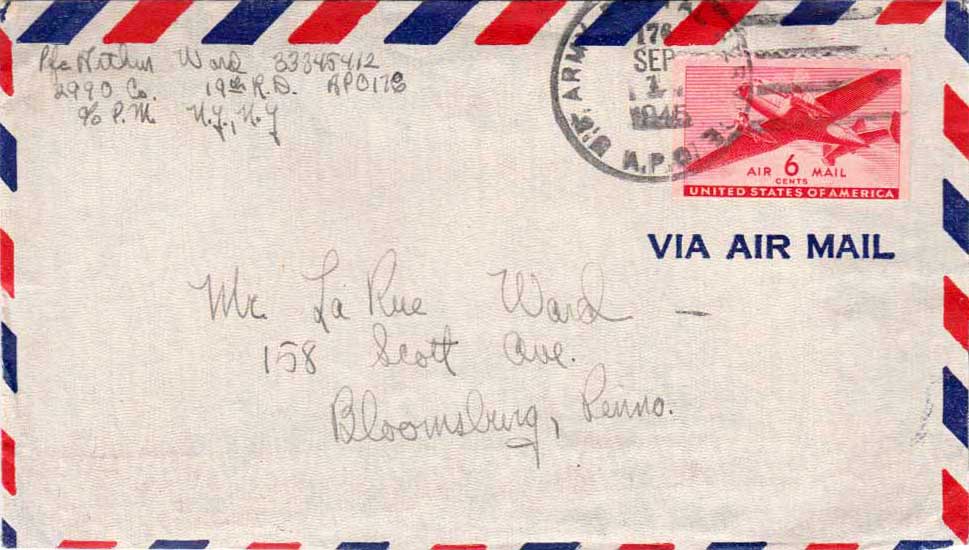 Pfc Nathan Ward 33345412
2990 Co. 19th R.D. APO 176
% P.M. N.Y., N.Y
U.S. ARMY
176
SEP
1
1945
A.P.O.
AIR 6 MAIL
CENTS
UNITED STATES OF AMERICA
VIA AIR MAIL
Mr. La Rue Ward —
158 Scott Ave.
Bloomsburg, Penna.